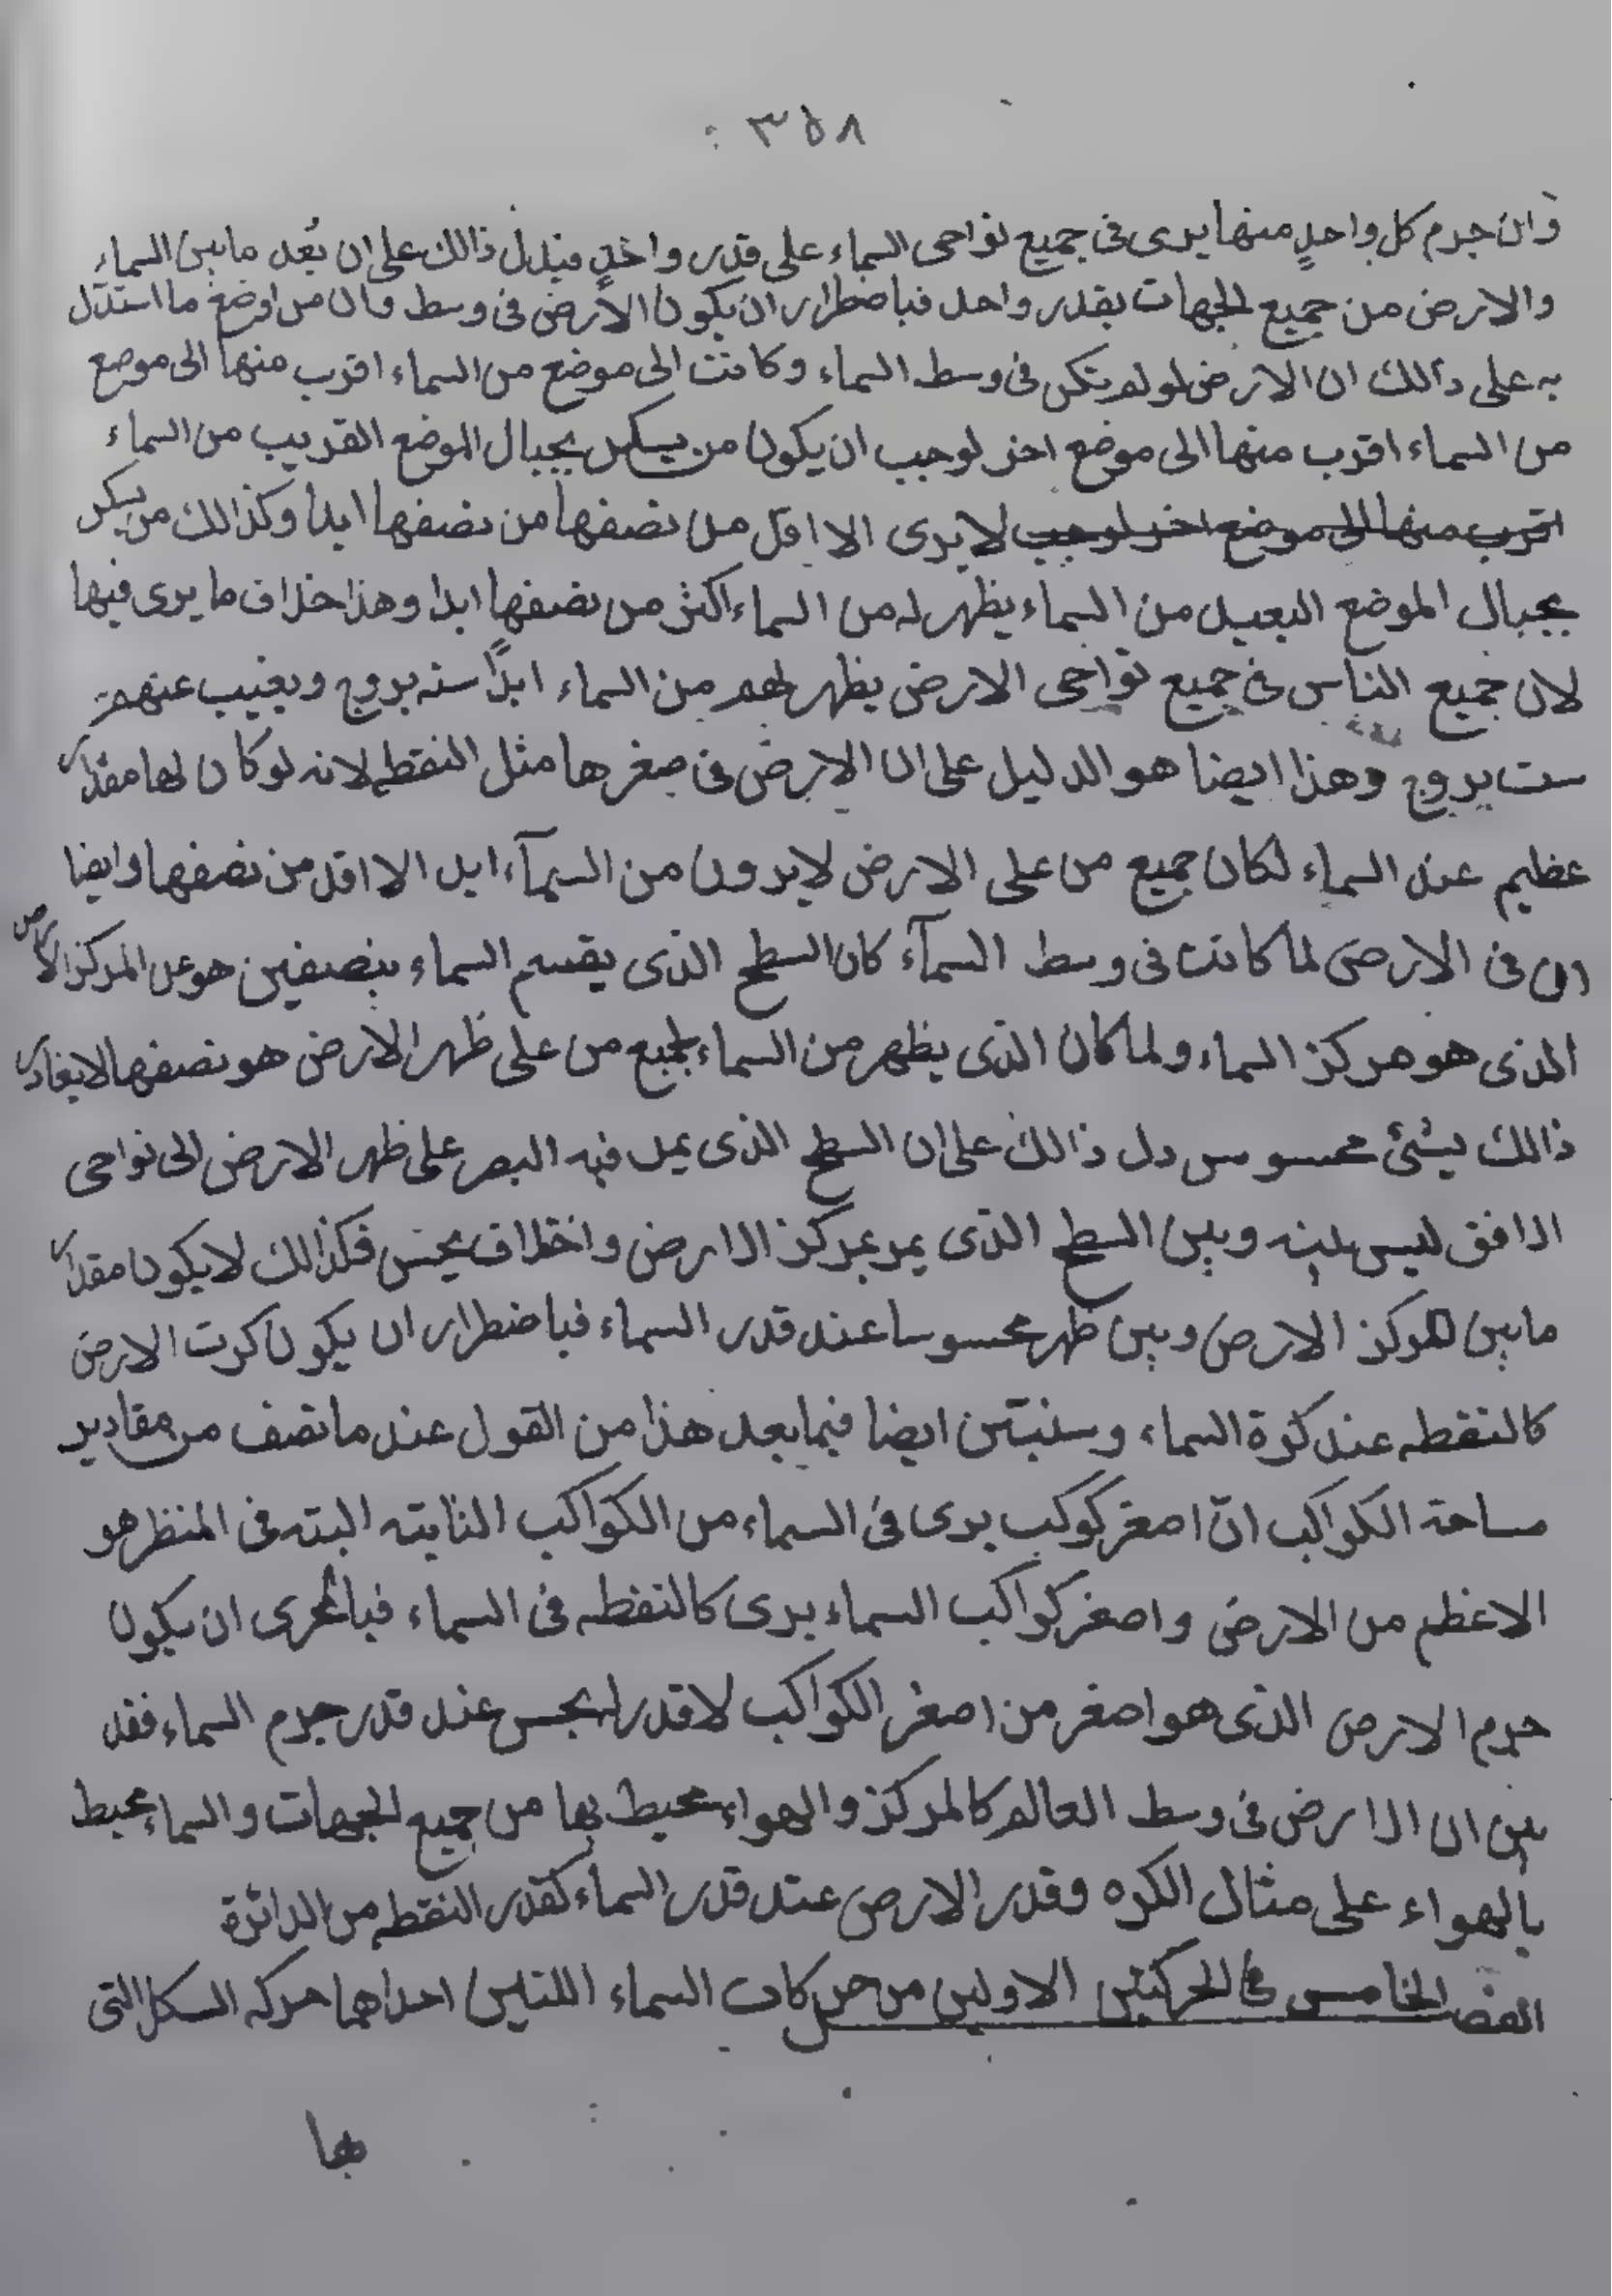 ٣٥٨ :
وان جرم كل واحدٍ منها يرى فى جميع نواحى السماء على قدر واحدٍ فيدل ذالك على ان بُعد ما بين السماء
والارض من جميع الجهات بقدر واحد فباضطرار ان يكون الارض فى وسط وان من اوضع ما استدل
به على ذالك ان الارض لو لم تكن فى وسط السماء وكانت الى موضع من السماء اقرب منها الى موضع
من السماء اقرب منها الى موضع اخر لوجب ان يكون من يسكن بجبال الموضع القريب من السماء
اقرب منها الى موضع اخر لوجب لا يرى الا اقل من نصفها من نصفها ابدا وكذالك من يسكن
بجبال الموضع البعيد من السماء يظهر له من السماء اكثر من نصفها ابدا وهذا خلاف ما يرى فيها
لان جميع الناس فى جميع نواحى الارض يظهر لهم من السماء ابدًا سته بروج ويغيب عنهم
ست بروج وهذا ايضا هو الدليل على ان الارض فى صغرها مثل النقطه لانه لو كان لها مقدار
عظيم عند السماء لكان جميع من على الارض لا يرون من السمآء ابد الا اقل من نصفها وايضا
ان فى الارض لما كانت فى وسط السمآء كان السطح الذى يقسم السماء بنصفين هو على المركز الارض
الذى هو مركز السماء ولما كان الذى يظهر من السماء لجميع من على ظهر الارض هو نصفها لا يغادر
ذالك بشئ محسوس دل ذالك على ان السطح الذى يمد فيه البصر على ظهر الارض الى نواحى
الافق ليس بينه وبين السطح الذى يمر بمركز الارض واختلاف يحس فكذالك لا يكون مقدار
ما بين المركز الارض وبين ظهر محسوسا عند قدر السماء فباضطرار ان يكون كرت الارض
كالنقطه عند كرة السماء وسنبيّن ايضا فيما بعد هذا من القول عند ما نصف من مقادير
مساحة الكواكب انّ اصغر كوكب يرى فى السماء من الكواكب الثابته البته فى المنظر هو
الاعظم من الارض واصغر كواكب السماء يرى كالنقطه فى السماء فبالحرى ان يكون
جرم الارض الذى هو اصغر من اصغر الكواكب لا قدر له يحس عند قدر جرم السماء فقد
بين ان الارض فى وسط العالم كالمركز والهواء محيط بها من جميع الجهات والسماء محيط
بالهواء على مثال الكره وقدر الارض عند قدر السماء كقدر النقطه من الدائرة
الفصل الخامس فى الحركتين الاولين من حركات السماء اللتين احداهما حركه الكل التى
بها